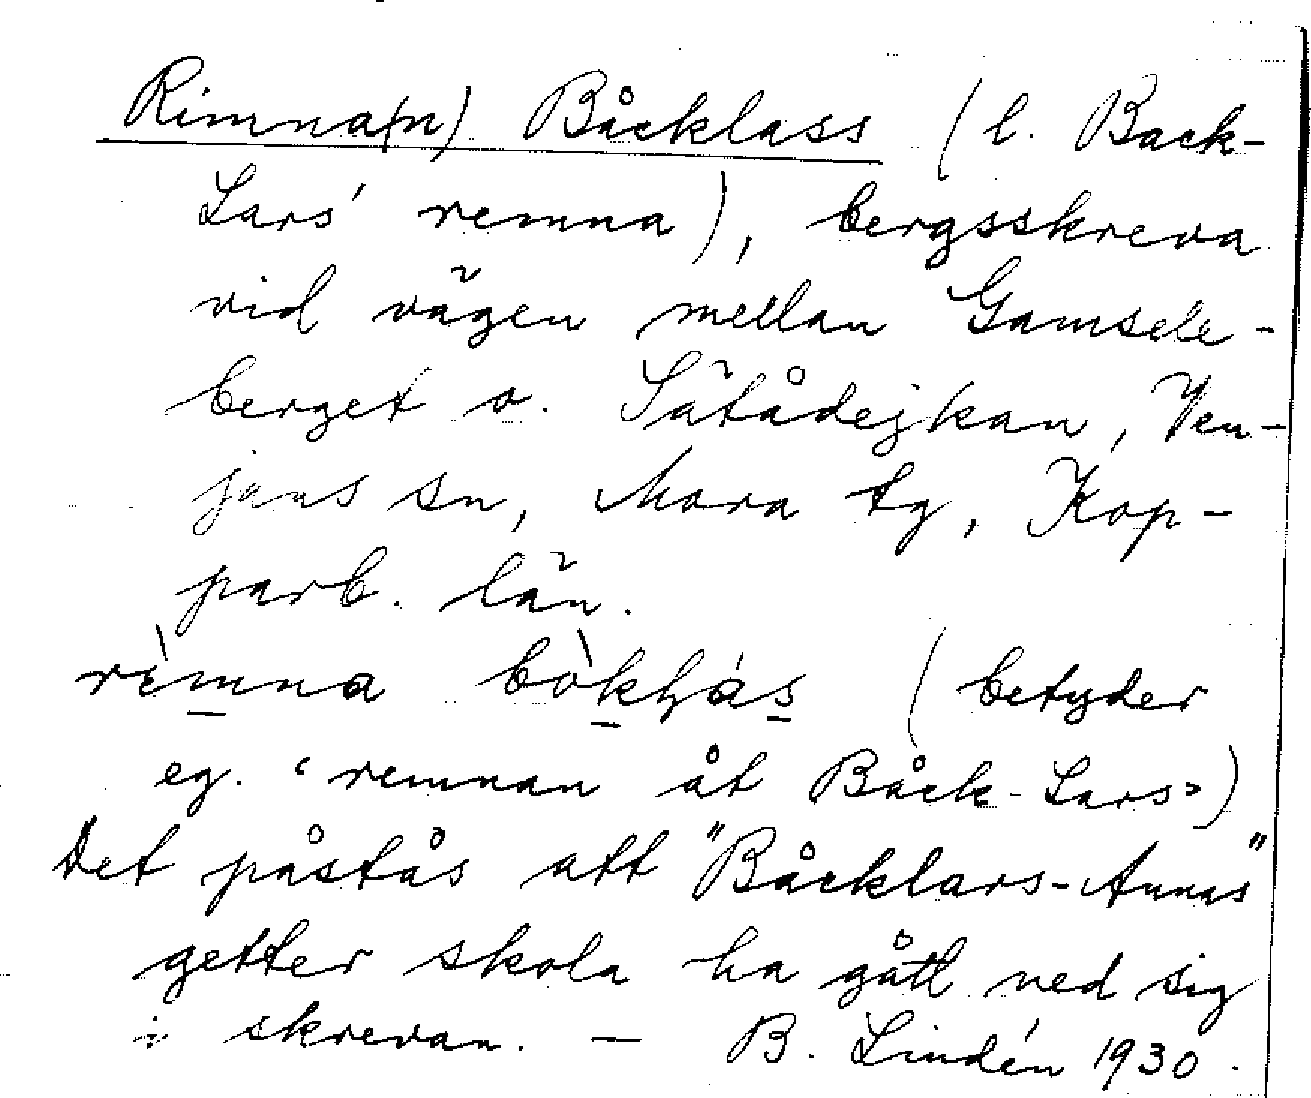 Rimna(n) Båcklass (l. Back-
Lars' remna), bergsskreva
vid vägen mellan Gamsele-
berget o. Sätådejkan, Ven-
jans sn, Mora tg, Kop-
parb. län.
rèmna bòkḷás (betyder
eg. ‘remnan åt Båck-Lars’)
Det påstås att "Båcklars-Annas"
getter skola ha gått ned sig
i skrevan. — B. Lindén 1930.